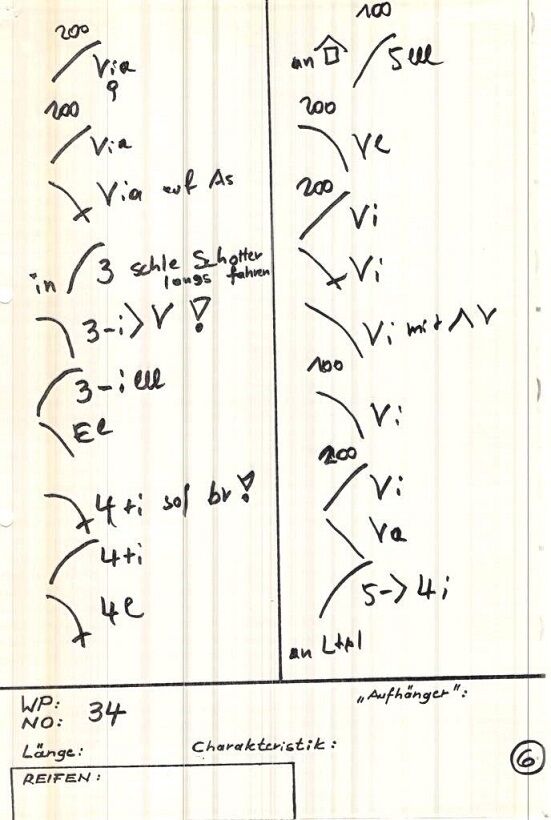 200
Via
200
Via
Via auf As
in 3 schle Schotter
langs fahren
3-i>V !
3-i
El
4+i sof br !
4+i
4l
100
an 5
200
Vl
200
Vi
Vi
Vi mit ΛV
100
Vi
200
Vi
Va
5->4i
an Ltpl
WP:
NO: 34
Länge:
Charakteristik:
„Aufhänger":
REIFEN:
6